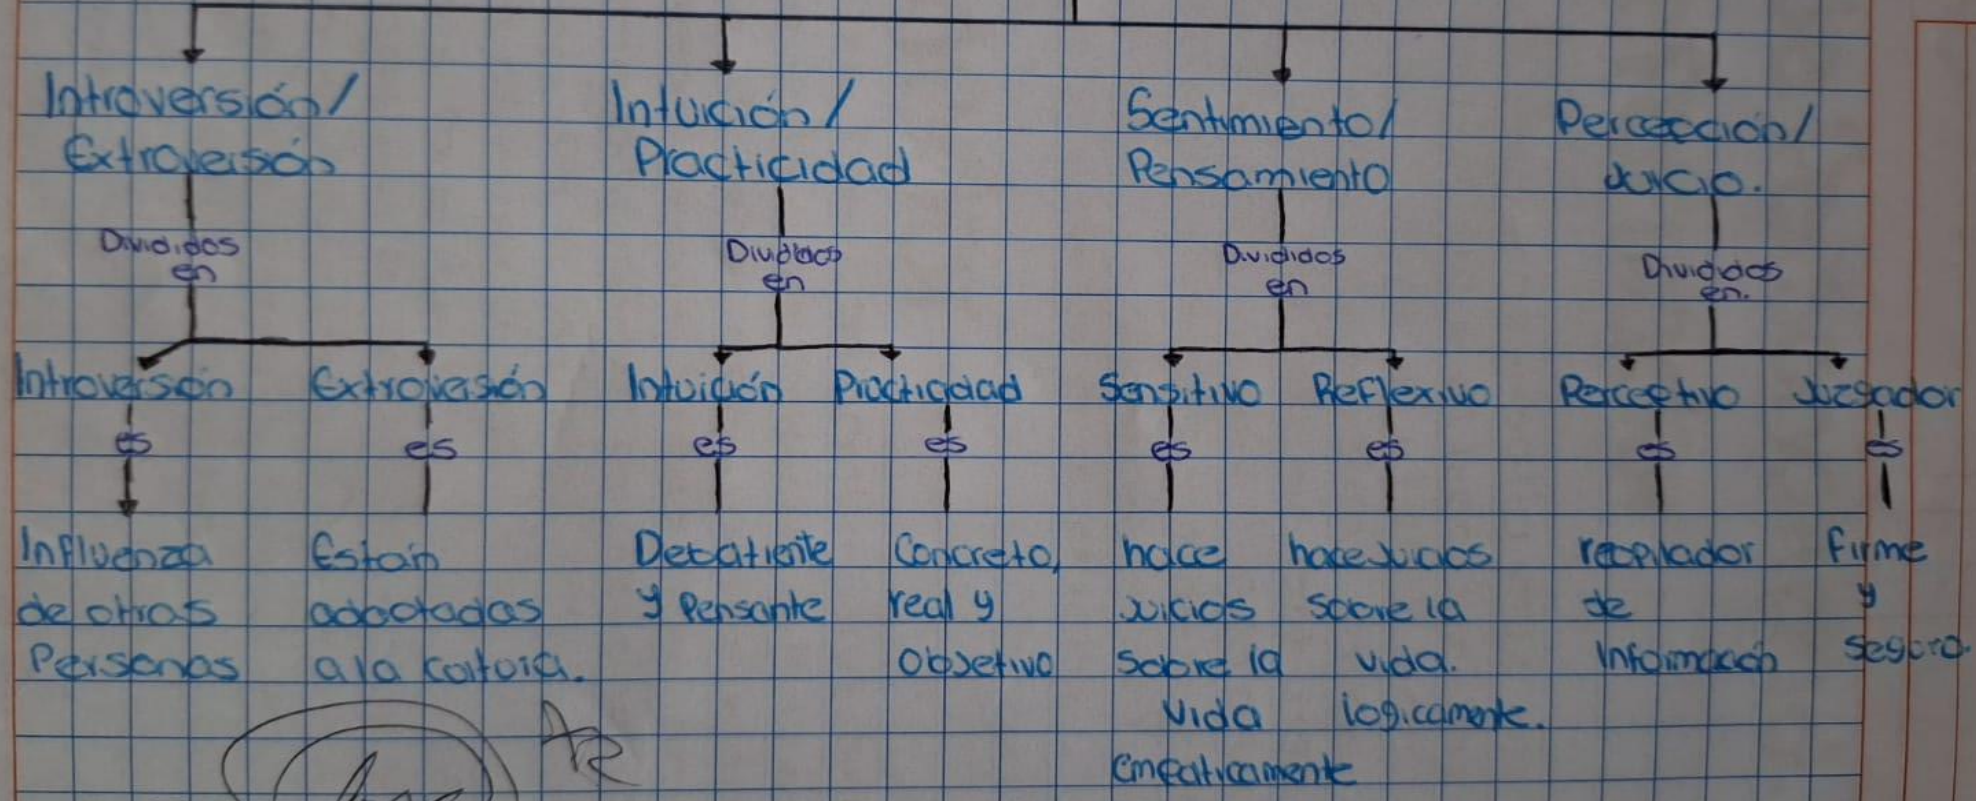 Introversión/
Extroversión
Divididos
en
Introversión
es
Influenza
de otras
Personas
Extroversión
es
Estan
adoptadas
a la cultura.
Intuición/
Practicidad
Divididos
en
Intuición
es
Debatiente
y Pensante
Practicidad
es
Concreto,
real y
Objetivo
Sentimiento/
Pensamiento
Divididos
en
Sensitivo
es
hace
juicios
sobre la
vida
empaticamente
Reflexivo
es
hace juicios
sobre la
vida.
logicamente.
Percepción/
Juicio.
Divididos
en.
Perceptivo
es
recopilador
de
Información
Juzgador
es
firme
y
seguro.